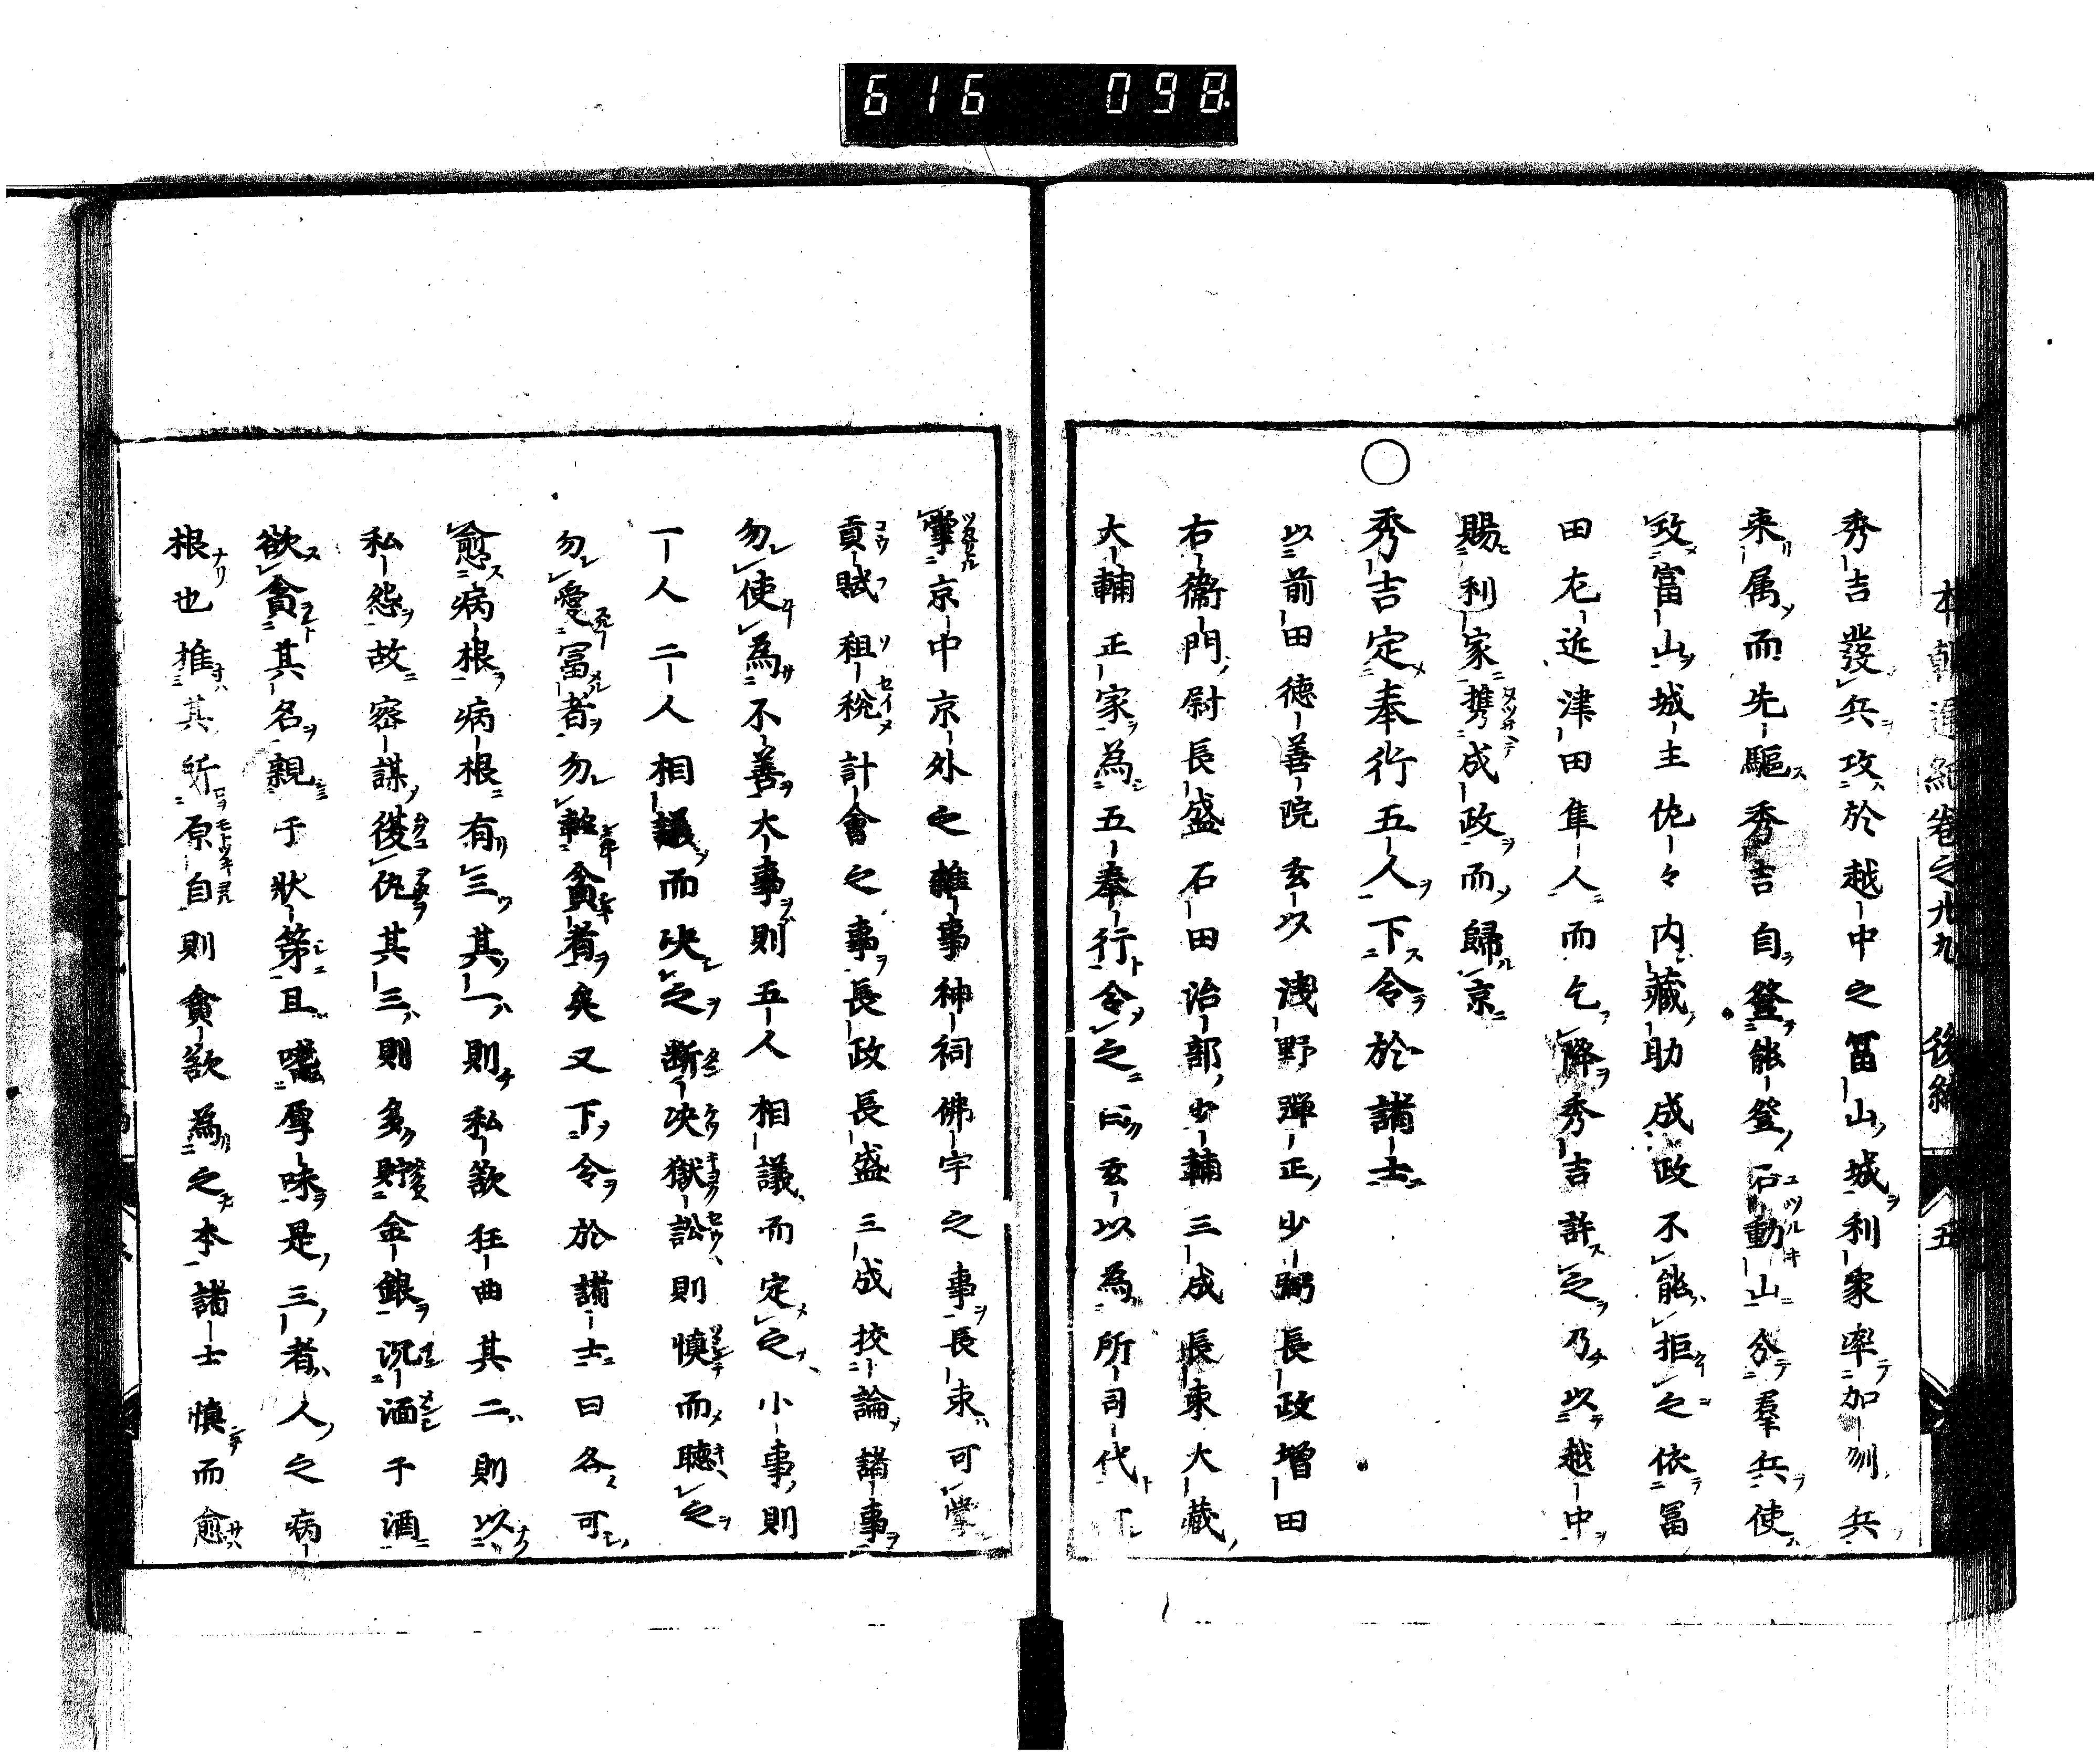 616 098
本朝通紀卷之九九 後編 五
秀吉發兵攻於越中之冨山城利家率加刕兵
来属而先驅秀吉自登能登石動山分羣兵使
攻富山城主佐々内藏助成政不能拒之依冨
田左近津田隼人而乞降秀吉許之乃以越中
賜利家携成政而歸京
○秀吉定奉行五人下令於諸士
以前田德善院玄以淺野彈正少弼長政增田
右衞門尉長盛石田治部少輔三成長束大藏
大輔正家為五奉行令之曰玄以為所司代可
掌京中京外之雜事神祠佛宇之事長束可掌
貢賦租稅計會之事長政長盛三成挍論諸事
勿使為不善大事則五人相議而定之小事則
一人二人相議而决之断决獄訟則慎而聴之
勿愛冨者勿輕貧者矣又下令於諸士曰各可
愈病根病根有三其一則私欲狂曲其二則以
私怨故密謀復仇其三則多貯金銀沉湎于酒
欲貪其名親于狀第且嗜厚味是三者人之病
根也推其所原自則貪欲為之本諸士慎而愈